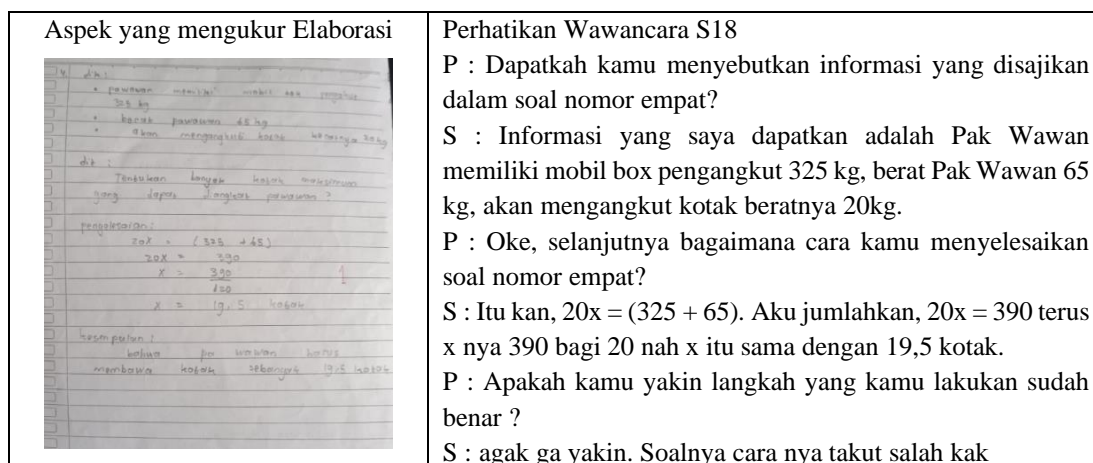 Aspek yang mengukur Elaborasi
dit :
• pawawan memiliki mobil box pengangkut
325 kg
• berat pawawan 65 kg
• akan mengangkut kotak 20 kg
dit :
Tentukan banyak kotak maksimum
yang dapat diangkat pawawan ?
penyelesaian :
20x = (325 + 65)
20x = 390
x = 390
x = 19,5 kotak
1
kesimpulan :
bahwa pa wawan harus
membawa kotak sebanyak 19,5 kotak
Perhatikan Wawancara S18
P : Dapatkah kamu menyebutkan informasi yang disajikan
dalam soal nomor empat?
S : Informasi yang saya dapatkan adalah Pak Wawan
memiliki mobil box pengangkut 325 kg, berat Pak Wawan 65
kg, akan mengangkut kotak beratnya 20kg.
P : Oke, selanjutnya bagaimana cara kamu menyelesaikan
soal nomor empat?
S : Itu kan, 20x = (325 + 65). Aku jumlahkan, 20x = 390 terus
x nya 390 bagi 20 nah x itu sama dengan 19,5 kotak.
P : Apakah kamu yakin langkah yang kamu lakukan sudah
benar ?
S : agak ga yakin. Soalnya cara nya takut salah kak